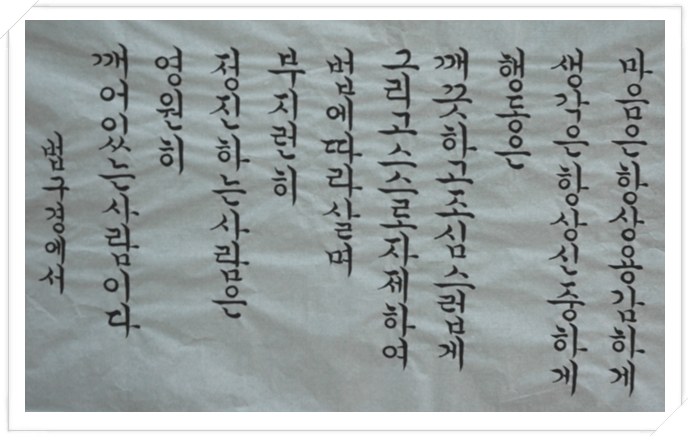 마음은항상용감하게
생각은항상신중하게
행동은
깨끗하고조심스럽게
그리고스스로자제하여
법에따라살며
부지런히
정진하는사람은
영원히
깨어있는사람이다
법구경에서